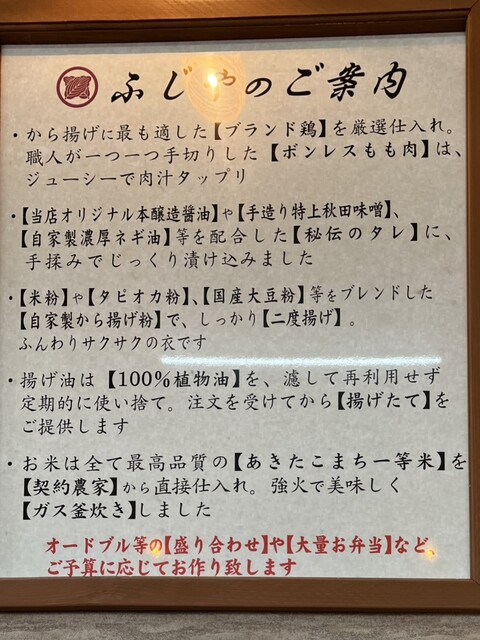 ふじやのご案内
・から揚げに最も適した【ブランド鶏】を厳選仕入れ。
職人が一つ一つ手切りした【ボンレスもも肉】は、
ジューシーで肉汁タップリ
・【当店オリジナル本醸造醤油】や【手造り特上秋田味噌】、
【自家製濃厚ネギ油】等を配合した【秘伝のタレ】に、
手揉みでじっくり漬け込みました
・【米粉】や【タピオカ粉】、【国産大豆粉】等をブレンドした
【自家製から揚げ粉】で、しっかり【二度揚げ】。
ふんわりサクサクの衣です
・揚げ油は【100%植物油】を、濾して再利用せず
定期的に使い捨て。注文を受けてから【揚げたて】を
ご提供します
・お米は全て最高品質の【あきたこまち一等米】を
【契約農家】から直接仕入れ。強火で美味しく
【ガス釜炊き】しました
オードブル等の【盛り合わせ】や【大量お弁当】など、
ご予算に応じてお作り致します